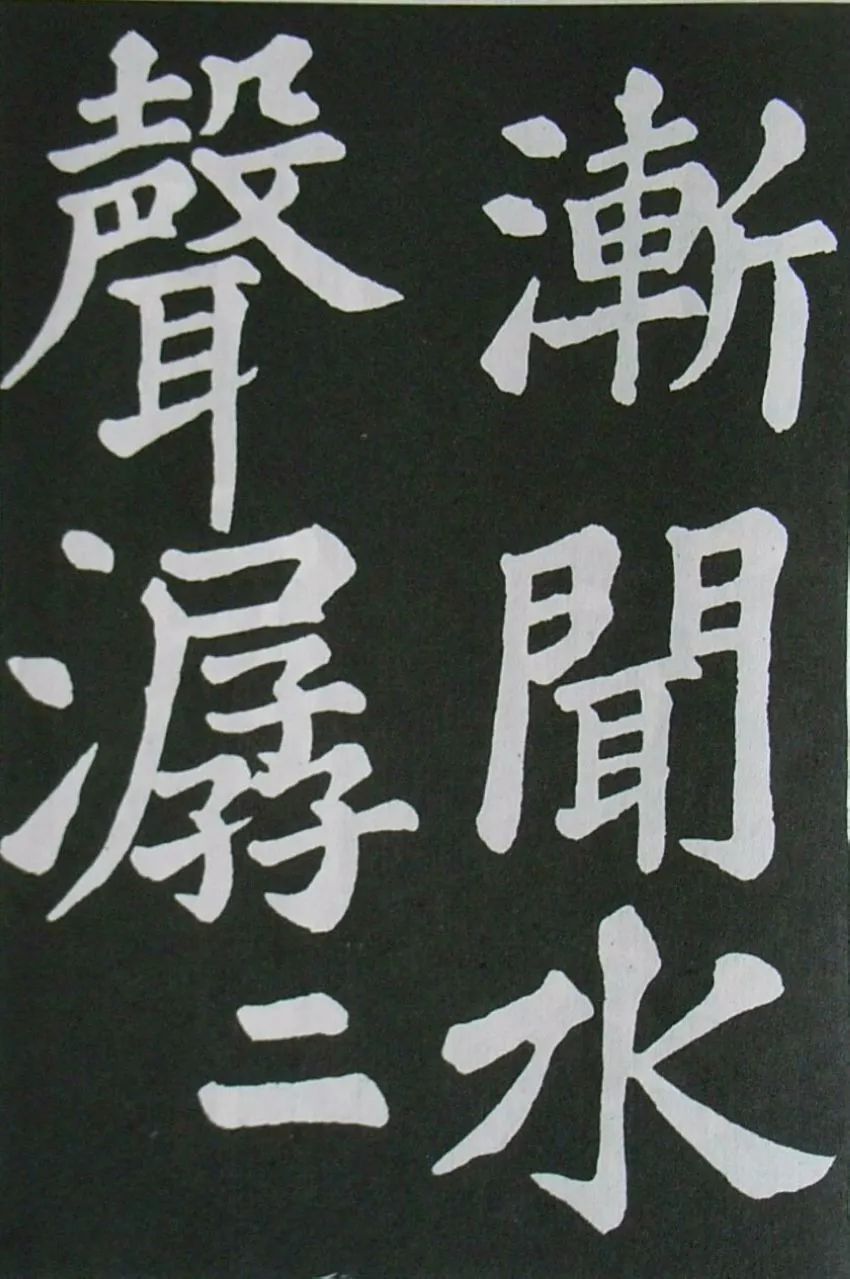 漸聞水
聲潺二